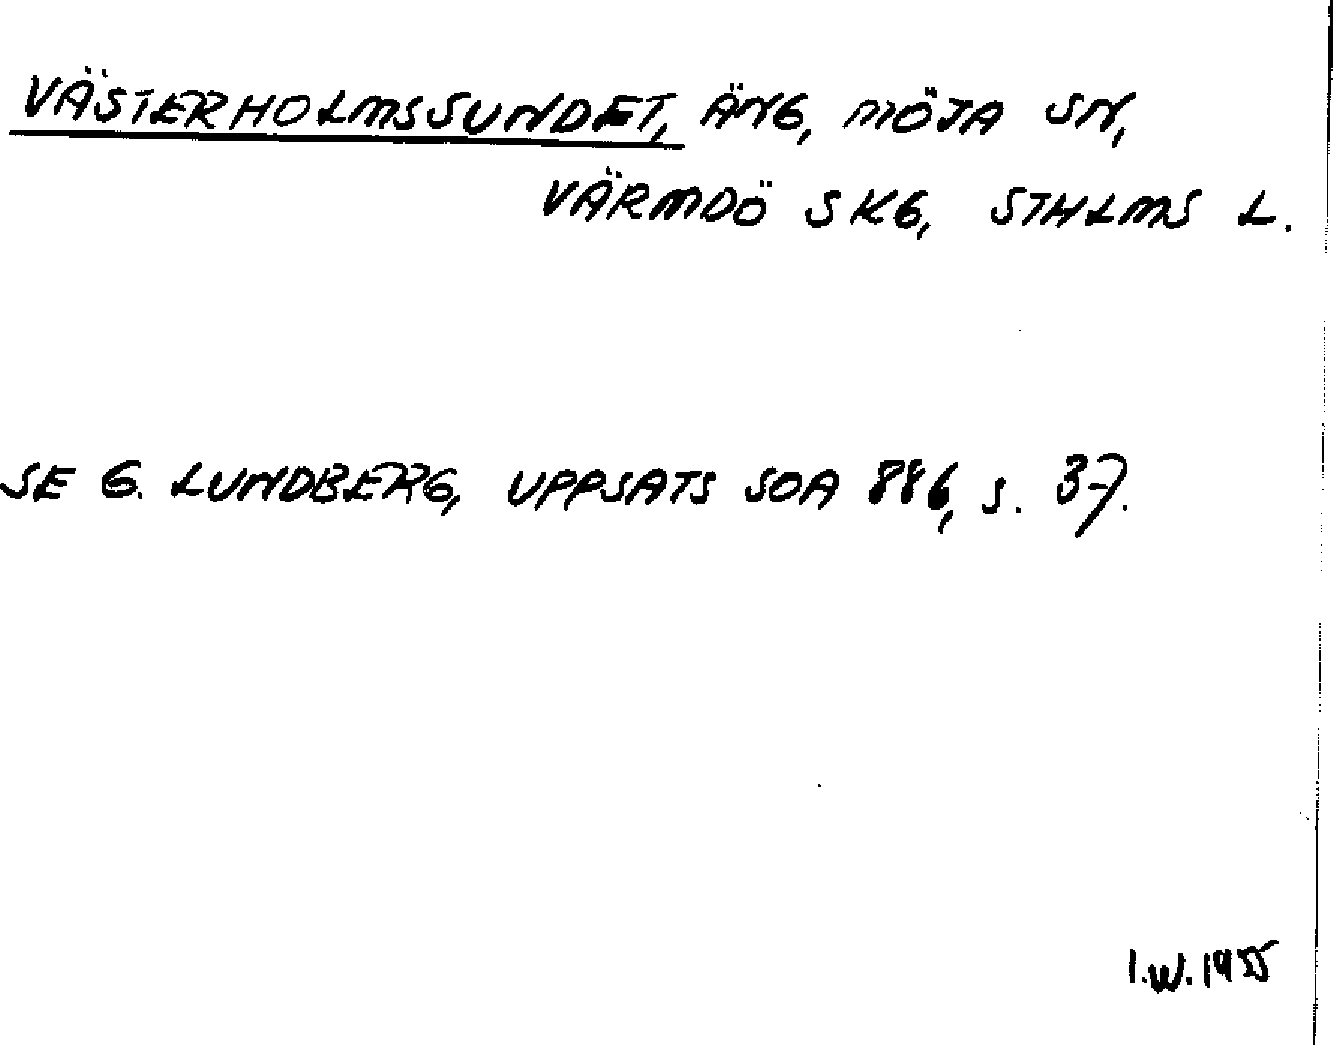 VÄSTERHOLMSSUNDET, ÄNG, MÖJA SN,
VÄRMDÖ SKG, STHLMS L.
SE G. LUNDBERG, UPPSATS SOA 886, S. 37.
I.W. 1955